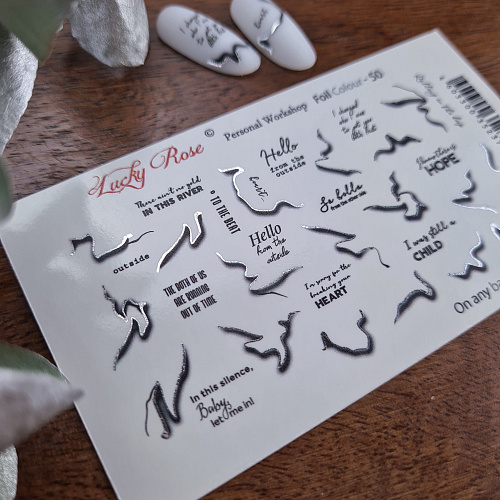 Lucky Rose ©
Personal Workshop
Foil Colour - 50
There ain't no gold
IN THIS RIVER
TO THE BEAT
Hello
from the
outside
heart..
So hello
from the other side
Something
HOPE
outside
Hello
from the
outside
I was still a
CHILD
THE BOTH OF US
ARE RUNNING
OUT OF TIME
I'm sorry for the
breaking your
HEART
In this silence,
Baby,
let me in!
On any ba